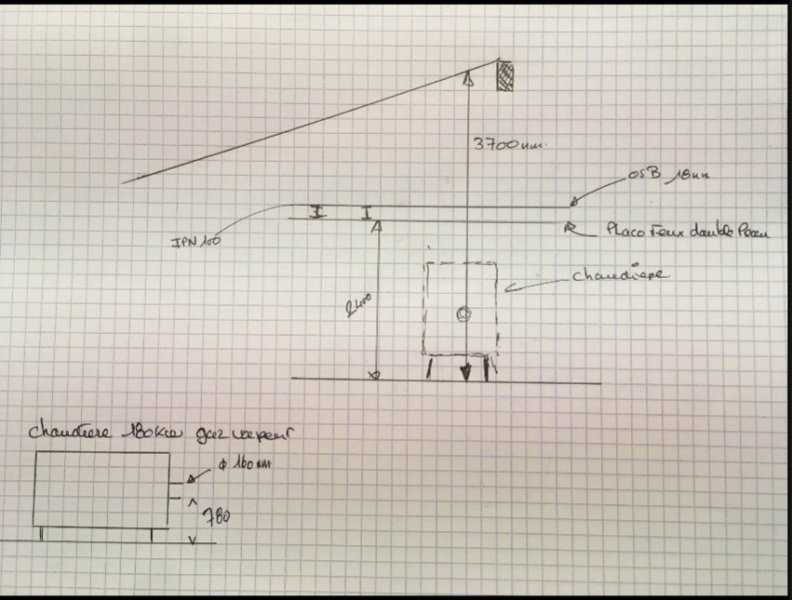 3700mm
OSB 18mm
IPN 100
Placo Feux double Peau
chaudiere
2400
chaudiere 180kw gaz
φ 160mm
780